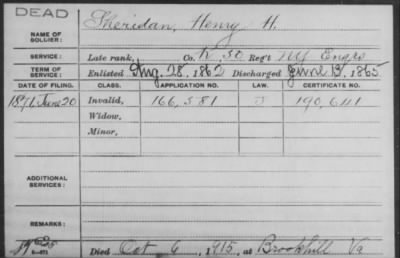 DEAD
NAME OF SOLDIER: Sheridan, Henry H.
SERVICE: Late rank, Co. K, 50 Reg't NY Engrs
TERM OF SERVICE: Enlisted Aug. 28, 1862 Discharged June 13, 1865
DATE OF FILING. CLASS. APPLICATION NO. LAW. CERTIFICATE NO.
1871, June 20 Invalid, 166,581 190,641
Widow,
Minor,
ADDITIONAL SERVICES:
REMARKS:
Died Oct 6, 1915, at Brookhill Va